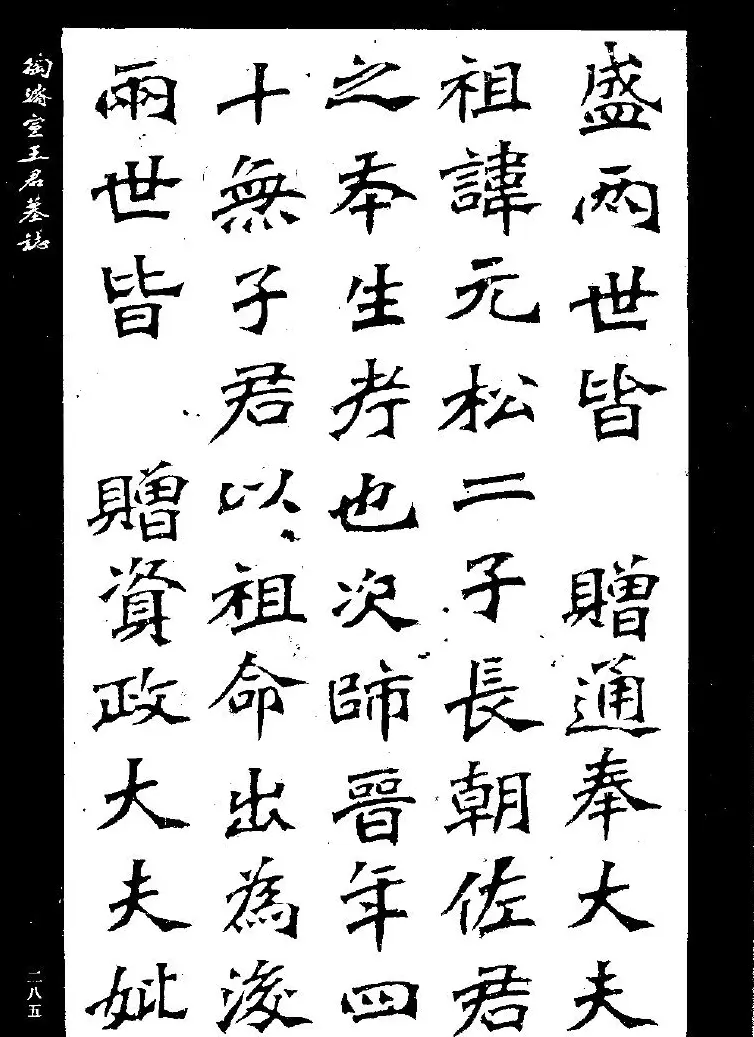 盛兩世皆 贈通奉大夫
祖諱元松二子長朝佐君
之本生考也次師晉年四
十無子君以祖命出為後
兩世皆 贈資政大夫妣
陶濬宣王君墓誌
二八五